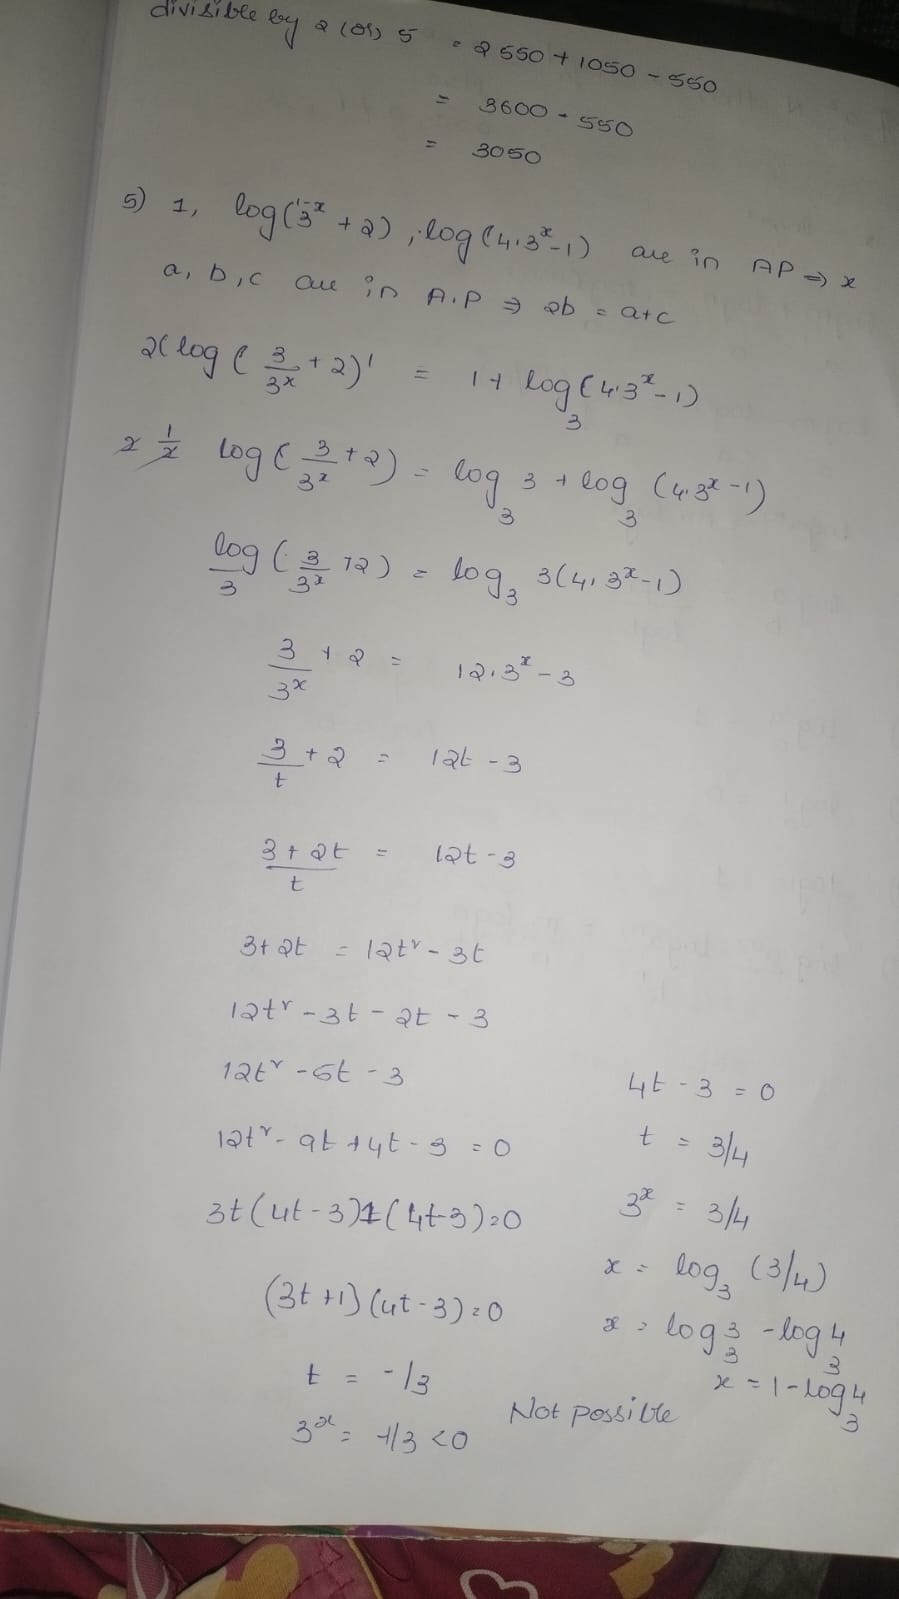 divisible by 2 (or) 5 = 2550 + 1050 - 550
= 3600 - 550
= 3050
5) 1, log(3^{1-x} + 2), log(4.3^x - 1) are in AP ⇒ x
a, b, c are in A.P ⇒ 2b = a+c
2(log(3/3^x + 2)^1 = 1 + log_3(4.3^x - 1)
2 1/2 log(3/3^x + 2) = log_3 3 + log_3 (4.3^x - 1)
log_3(3/3^x + 2) = log_3 3(4.3^x - 1)
3/3^x + 2 = 12.3^x - 3
3/t + 2 = 12t - 3
(3 + 2t)/t = 12t - 3
3 + 2t = 12t² - 3t
12t² - 3t - 2t - 3
12t² - 5t - 3
12t² - 9t + 4t - 3 = 0
3t(4t - 3)1(4t-3) = 0
(3t + 1)(4t - 3) = 0
t = -1/3
3^x = -1/3 < 0 Not possible
4t - 3 = 0
t = 3/4
3^x = 3/4
x = log_3 (3/4)
x = log_3 3 - log_3 4
x = 1 - log_3 4